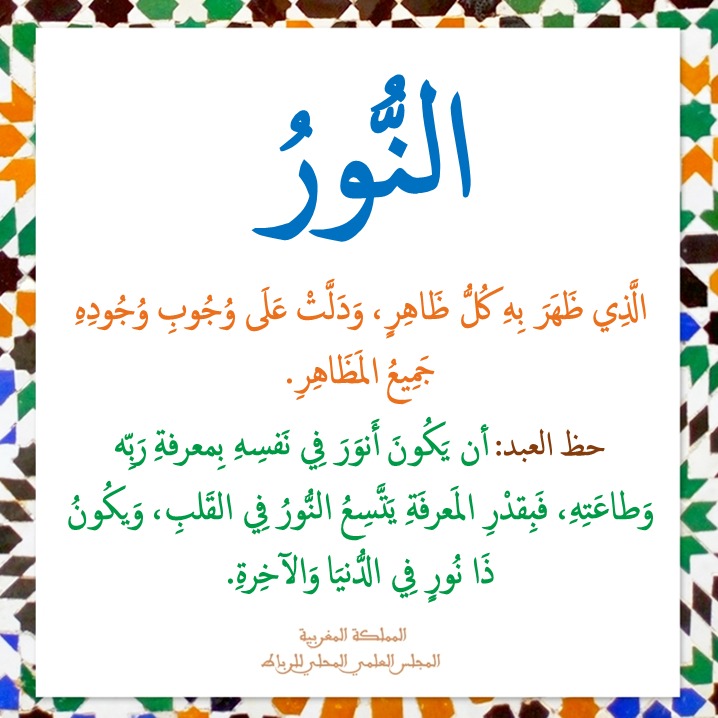 النُّورُ
الَّذِي ظَهَرَ بِهِ كُلُّ ظَاهِرٍ، وَدَلَّتْ عَلَى وُجُوبِ وُجُودِهِ
جَمِيعُ المَظَاهِرِ.
حظ العبد: أن يَكُونَ أَنوَرَ فِي نَفسِهِ بِمعرفةِ رَبِّه
وَطاعَتِهِ، فَبِقدْرِ المَعرفَةِ يَتَّسِعُ النُّورُ فِي القَلبِ، وَيكُونُ
ذَا نُورٍ فِي الدُّنيَا وَالآخِرةِ.
المملكة المغربية
المجلس العلمي المحلي للرباط